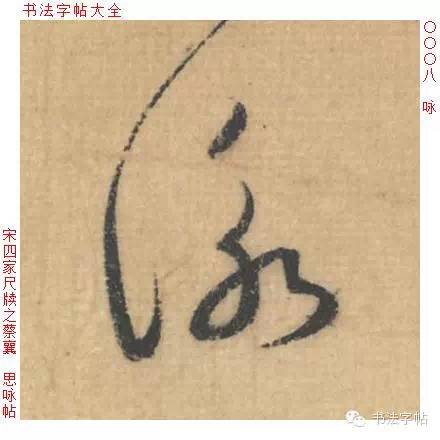 书法字帖大全
〇〇〇八 咏
咏
宋四家尺牍之蔡襄 思咏帖
书法字帖